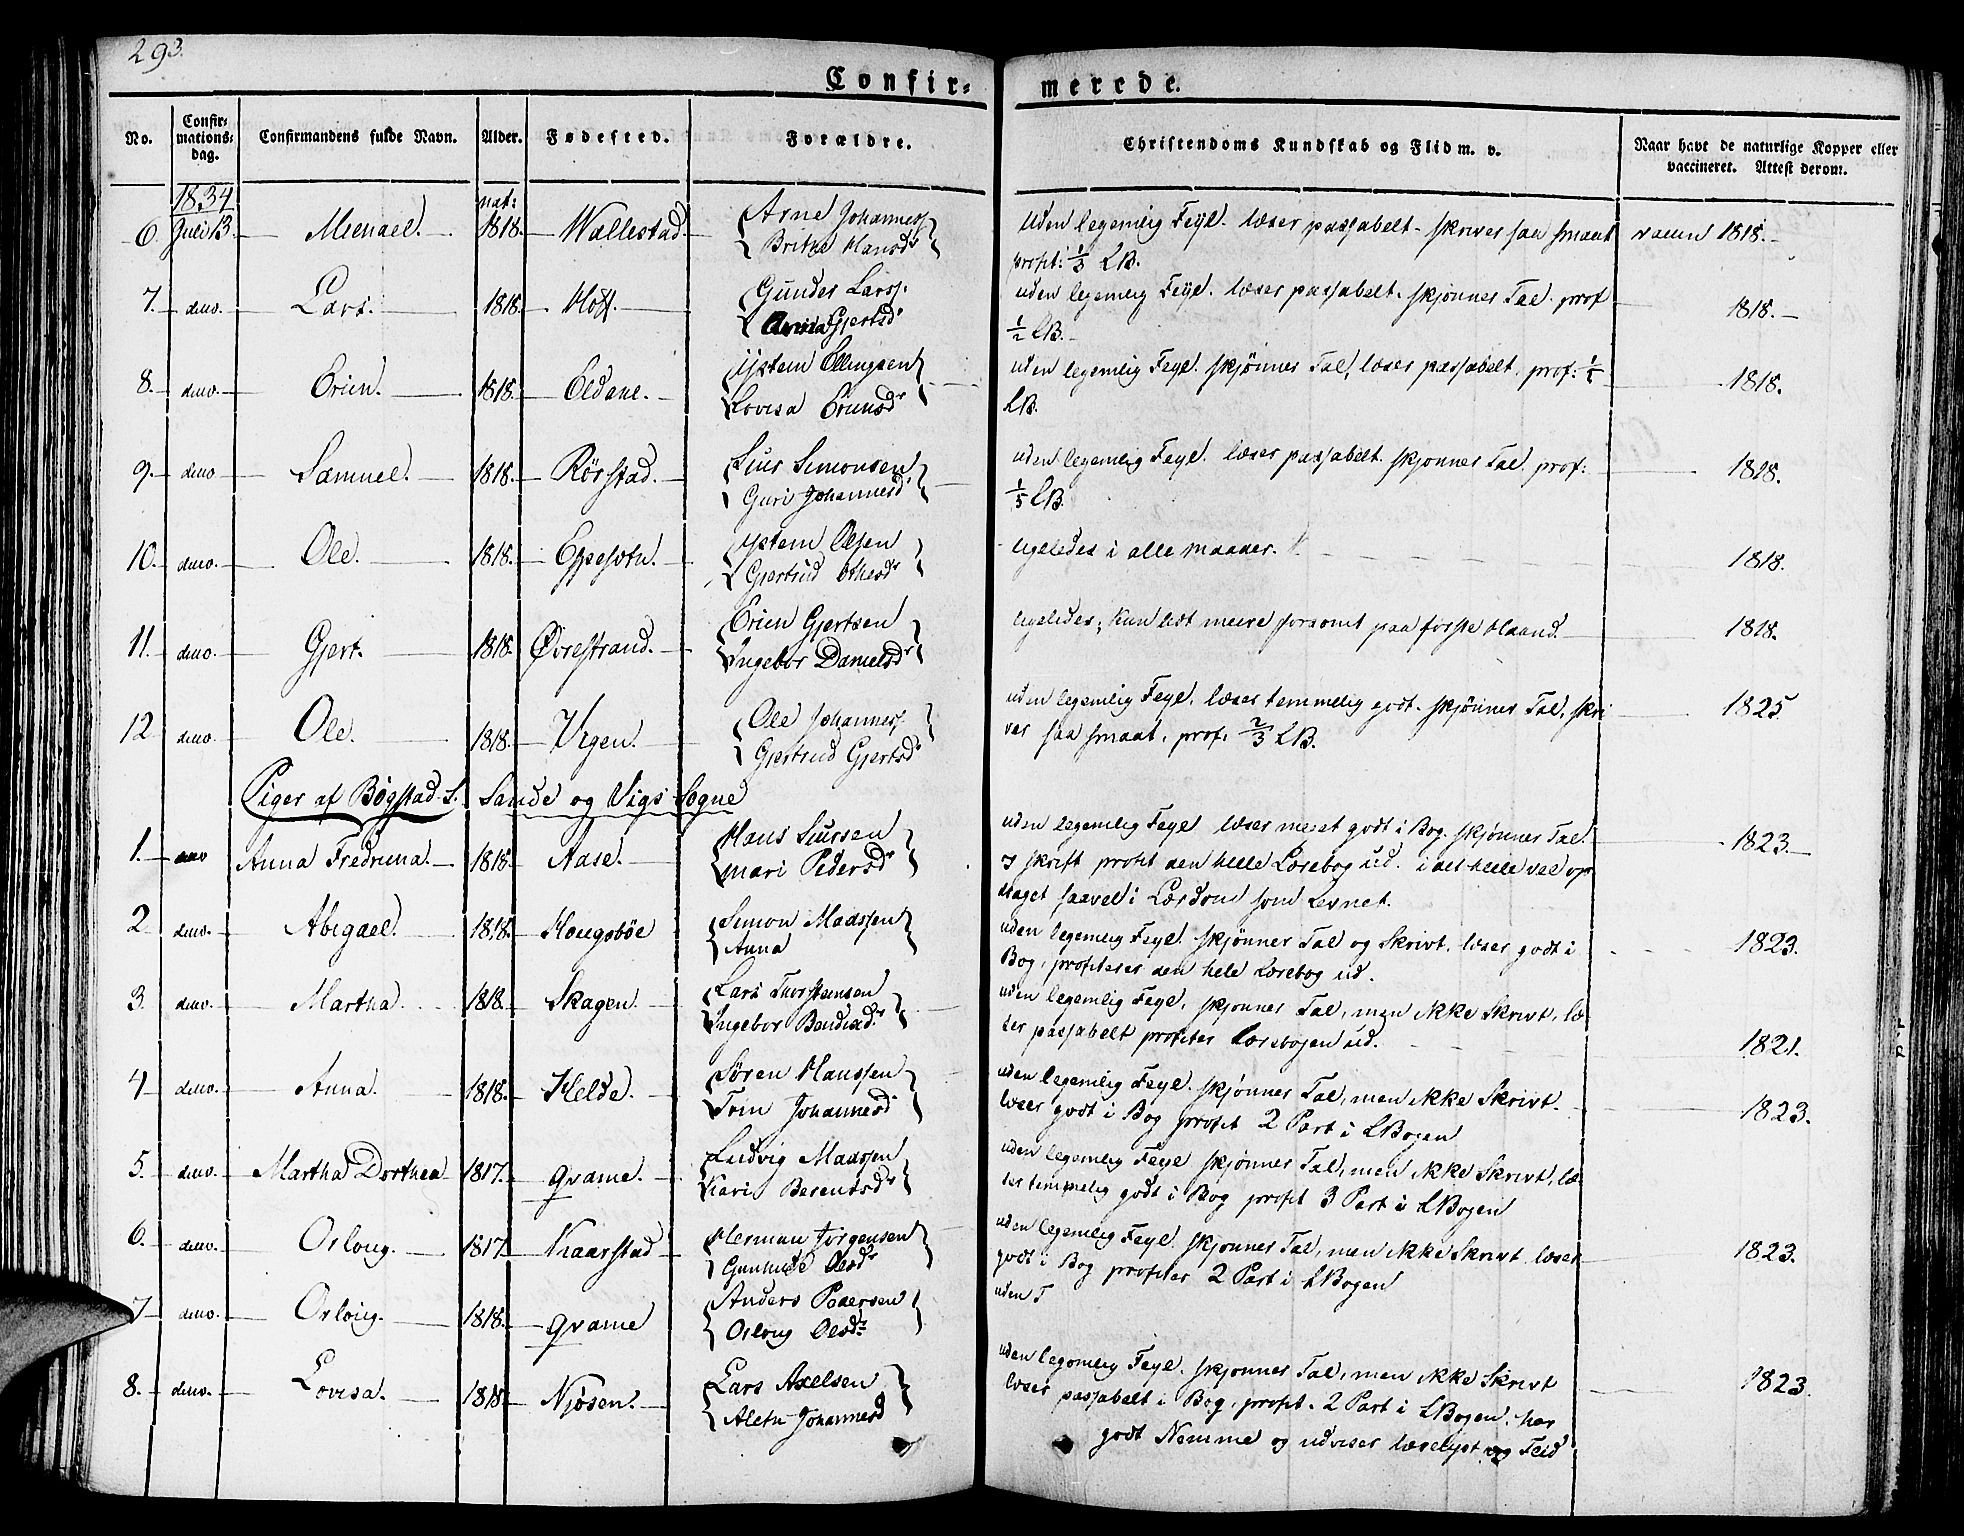 293.
Confir-
merede.
No.
Confir-
mations-
dag.
Confirmandens fulde Navn.
Alder.
Fødested.
Forældre.
Christendoms Kundskab og Flid m. v.
Naar havt de naturlige Kopper eller
vaccineret. Attest derom.
1834
nat:
6 Juli 13. Michael. 1818. Wallestad.
Arne Johannesf
Brithe Hansd
Uden legemlig Feyl. læser passabelt. skriver saa smaat
profit: 1/3 LB.
vaccin 1818.
7. dito. Lars. 1818. Hoff.
Gunder Larsf.
Anna Gjertsd
uden legemlig Feyl. læser passabelt. skjønner Tal. prof
1/2 LB.
1818.
8. dito. Erich. 1818. Eldane.
Ystein Ellingsen
Lovisa Erichsd
uden legemlig Feyl. skjønner Tal, læser passabelt. prof:
LB.
1818.
9. dito Samuel. 1818. Rörstad.
Siur Simonsen
Guri Johannesd
uden legemlig Feyl. læser passabelt. skjønner Tal. prof:
1/5 LB.
1818.
10. dito. Ole. 1818. Espesætr.
Ystein Olsen
Gjertrud
ligeledes i alle Maader.
1818.
11. dito. Gjert. 1818. Øvrestrand.
Erich Gjertsen
Ingebor Danielsd
ligeledes; kun lidt meere forsømt paa første Haand.
1818.
12 dito. Ole. 1818. Vegen.
Ole Johannesf.
Gjertrud Gjertsd
uden legemlig Feyl, læser temmelig godt. skjønner Tal, skri
ver saa smaat, prof. 2/3 LB.
1825
Piger af Bøgstad S. Sande og Vigs Sogne
1. dito Anna Fredrina. 1818. Aase.
Hans Siursen
Mari Pedersd
uden legemlig Feyl læser meget godt i Bog. skjønner Tal.
og skrift profit den heele Lærebog ud. i det heele vel op
draget saavel i Lærdom som Levnet.
1823.
2 dito. Abigael. 1818. Kongsbøe
Simon Madssen
Anna
uden legemlig Feyl. skjønner Tal og Skrivt, læser godt i
Bog, profiterer den hele Lærebog ud.
1823.
3. dito. Martha. 1818. Skagen.
Lars Thorsteinsen
Ingebor
uden legemlig Feyl. skjønner Tal, men ikke Skrivt, læ
ser passabelt profiter Lærebogen ud.
1821.
4 dito. Anna. 1818. Kelde.
Sören Hanssen
Johannesd
uden legemlig Feyl. skjønner Tal, men ikke Skrivt.
læser godt i Bog profit 2 Part i LBogen
1823.
5. dito. Martha Dorthea 1817. Qvame.
Ludvig Madssen
Kari Berentsd
uden legemlig Feyl skjønner Tal, men ikke Skrivt, læ
ser temmelig godt i Bog profit 3 Part i LBogen
6. dito. Orloug. 1817. Kaarstad
Herman Jørgensen
Gunhilde Olsd
uden legemlig Feyl. skjønner Tal, men ikke Skrivt læser
godt i Bog profiter 2 Part i LBogen
1823.
7 dito. Orloug. 1818. Qvame
Anders Pedersen
Orloug Olsd:
uden F
8. dito. Lovisa. 1818. Njøsen.
Lars Axelsen
Johannesd
uden legemlig Feyl. skjønner Tal, men ikke Skrivt
læser passabelt i Bog, profit. 2 Part i LBogen. har
godt Nemme og udviser læselyst og Flid
1823.